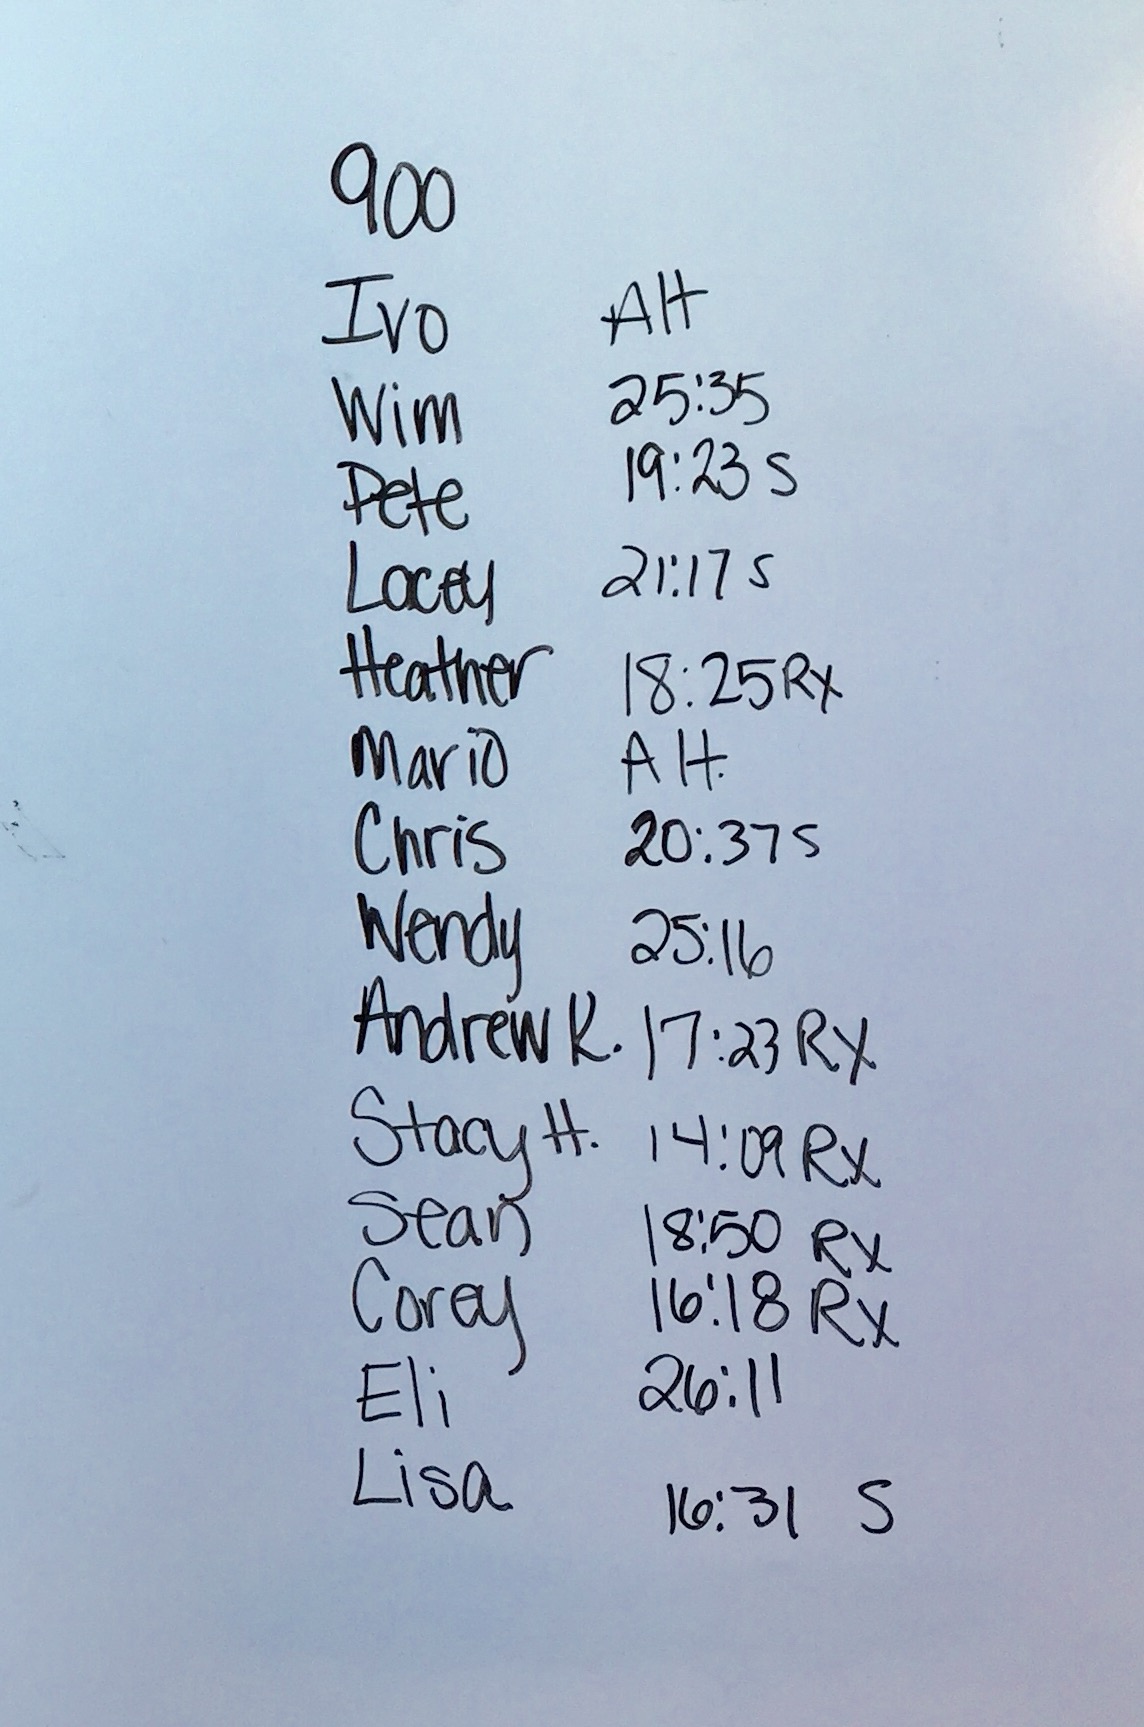 900
Ivo Alt
Wim 25:35
Pete 19:23 S
Lacey 21:17 S
Heather 18:25 Rx
Mario Alt.
Chris 20:37 S
Wendy 25:16
Andrew K. 17:23 RX
Stacy H. 14:09 Rx
Sean 18:50 Rx
Corey 16:18 Rx
Eli 26:11
Lisa 16:31 S